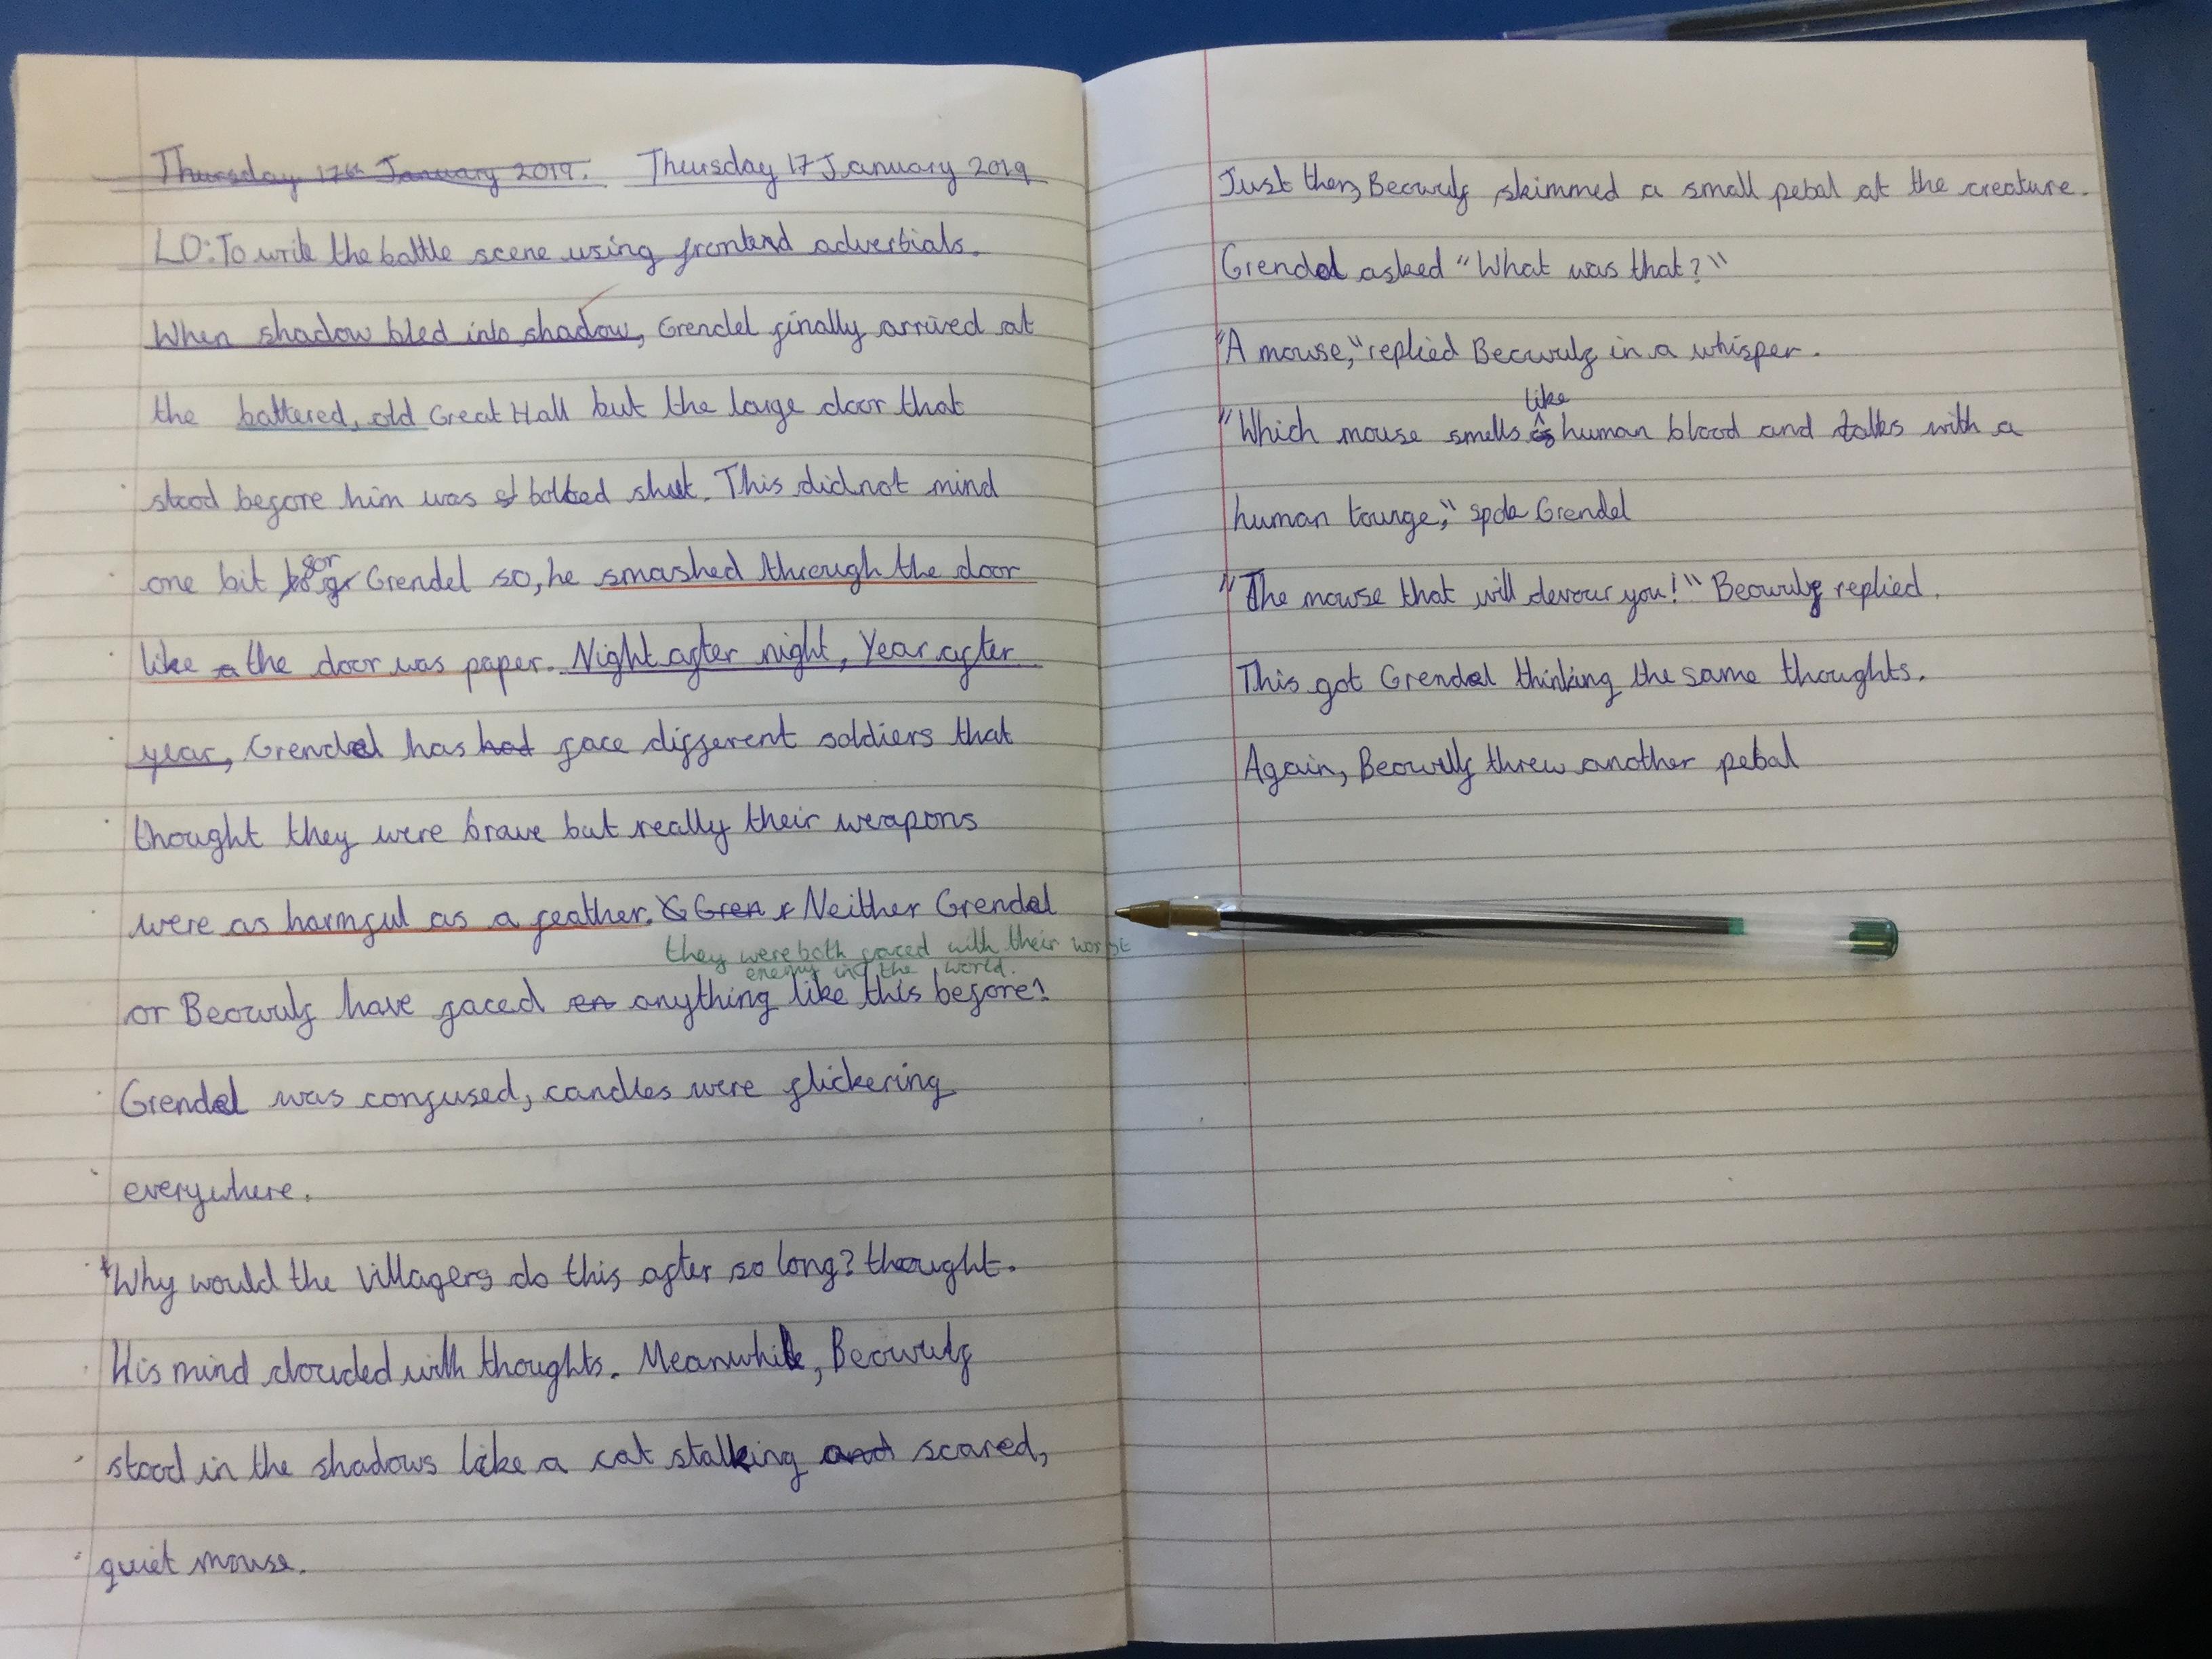 Thursday 17th January 2019. Thursday 17 January 2019
LO: To write the battle scene using frontend adverbials.
When shadow bled into shadow, Grendel finally arrived at
the battered, old Great Hall but the large door that
stood before him was bolted shut. This did not mind
one bit for Grendel so, he smashed through the door
like the door was paper. Night after night, Year after
year, Grendel has had face different soldiers that
thought they were brave but really their weapons
were as harmful as a feather. G Gren Neither Grendel
they were both faced with their worst
enemy in the world.
or Beowulf have faced en anything like this before!
Grendel was confused, candles were flickering
everywhere.
"Why would the villagers do this after so long? thought.
His mind clouded with thoughts. Meanwhile, Beowulf
stood in the shadows like a cat stalking and scared,
quiet mouse.
Just then, Beowulf skimmed a small pebal at the creature.
Grendel asked "What was that?"
"A mouse," replied Beowulf in a whisper.
like
"Which mouse smells as human blood and talks with a
human tounge," spok Grendel
"The mouse that will devour you!" Beowulf replied.
This got Grendel thinking the same thoughts.
Again, Beowulf threw another pebal